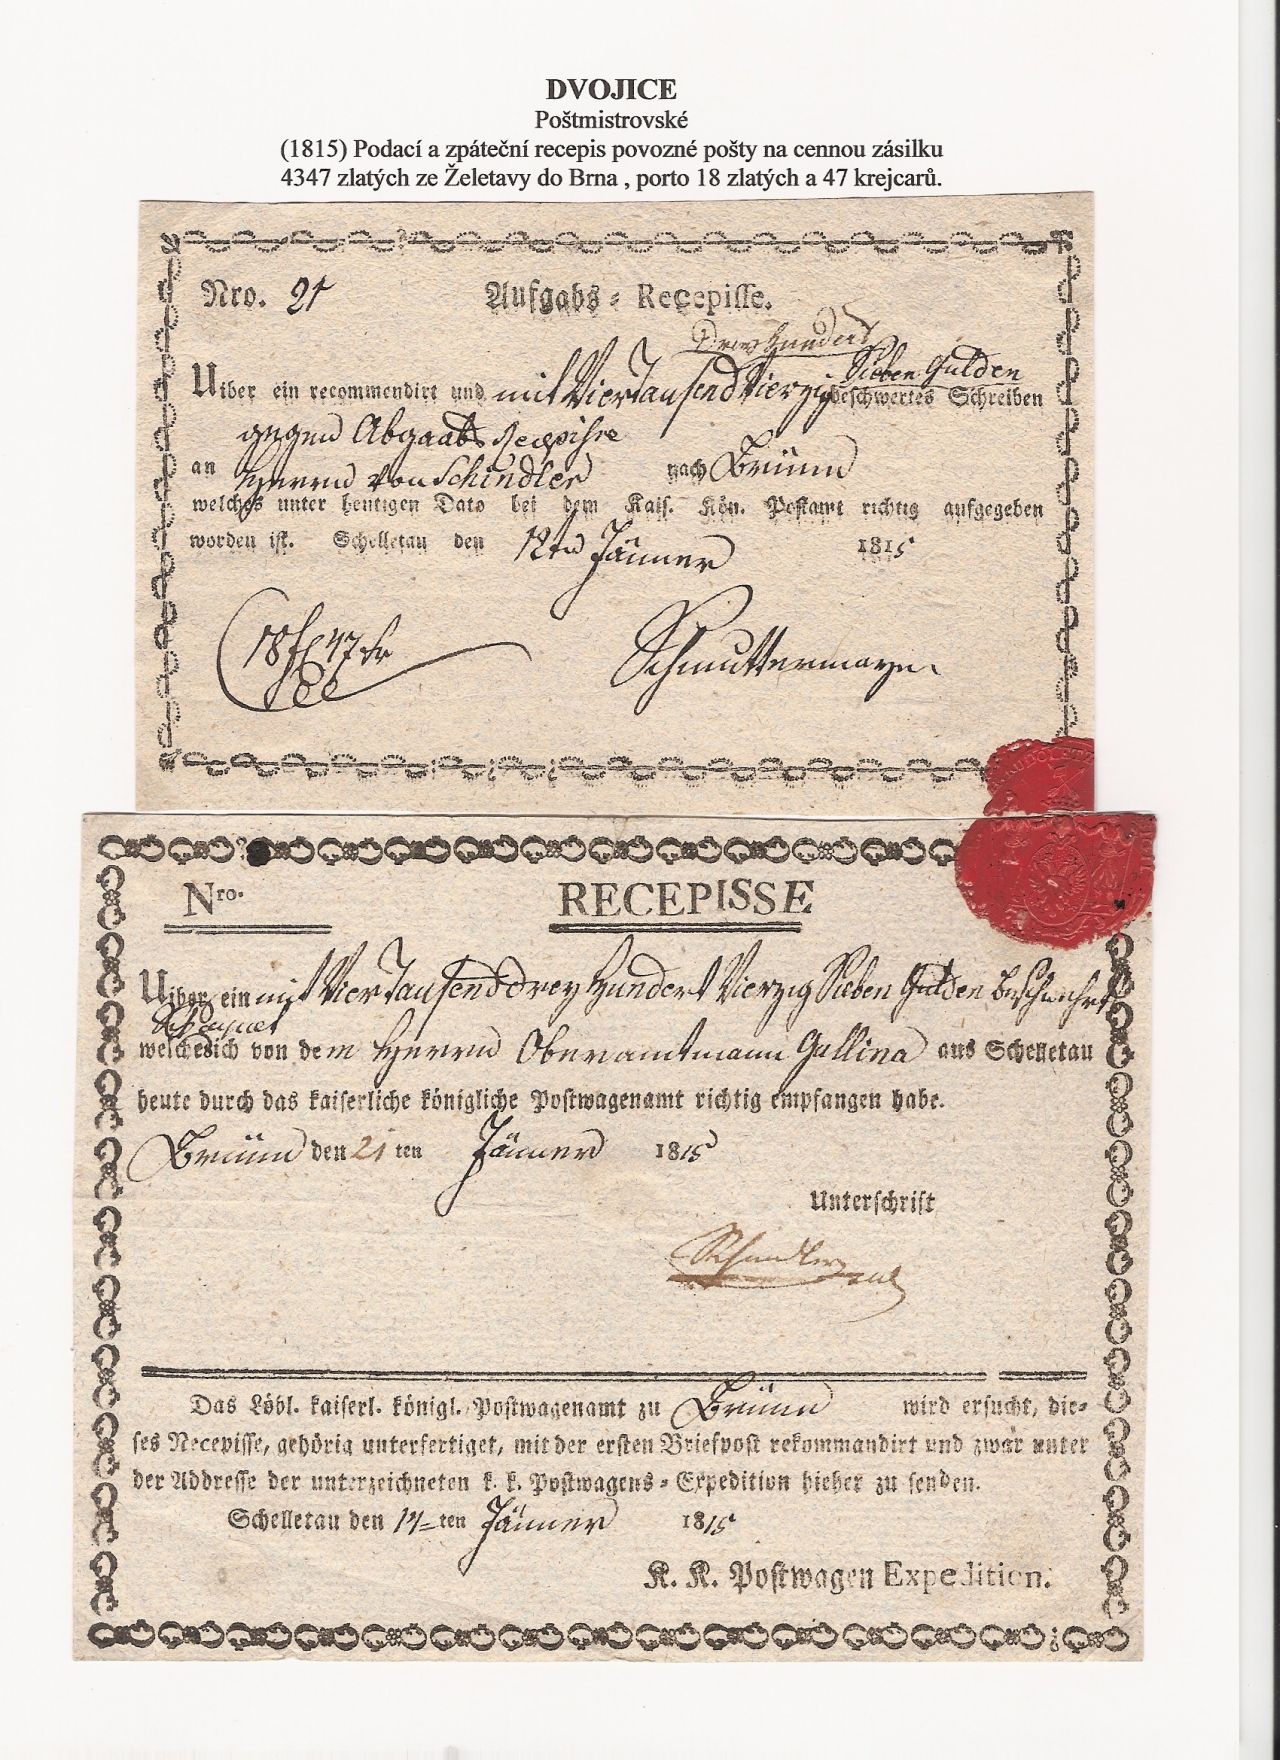 DVOJICE
Poštmistrovské
(1815) Podací a zpáteční recepis povozné pošty na cennou zásilku
4347 zlatých ze Želetavy do Brna , porto 18 zlatých a 47 krejcarů.
Nro. 21 Aufgabs = Recepisse.
Drey Hundert
Sieben Gulden
Uiber ein recommendirt und mit Vier Tausend Vierzig beschwertes Schreiben
gegen Abgaabs Recepisse
an Herrn von Schindler nach Brünn
welches unter heutigen Dato bei dem Kais. Kön. Postamt richtig aufgegeben
worden ist. Schelletau den 12ten Jänner 1815
18 fl 47 kr
Schmuttermayer
Nro. RECEPISSE
Uiber ein mit Vier Tausend drey Hundert Vierzig Sieben Gulden beschwehrt
welches ich von dem Herrn Oberamtmann Gallina aus Schelletau
heute durch das kaiserliche königliche Postwagenamt richtig empfangen habe.
Brünn den 21 ten Jänner 1815
Unterschrift
Das Löbl. kaiserl. königl. Postwagenamt zu Brünn wird ersucht, die-
ses Recepisse, gehörig unterfertiget, mit der ersten Briefpost rekommandirt und zwar unter
der Addresse der unterzeichneten k. k. Postwagens = Expedition hieher zu senden.
Schelletau den ten Jänner 1815
K. K. Postwagen Expedition.